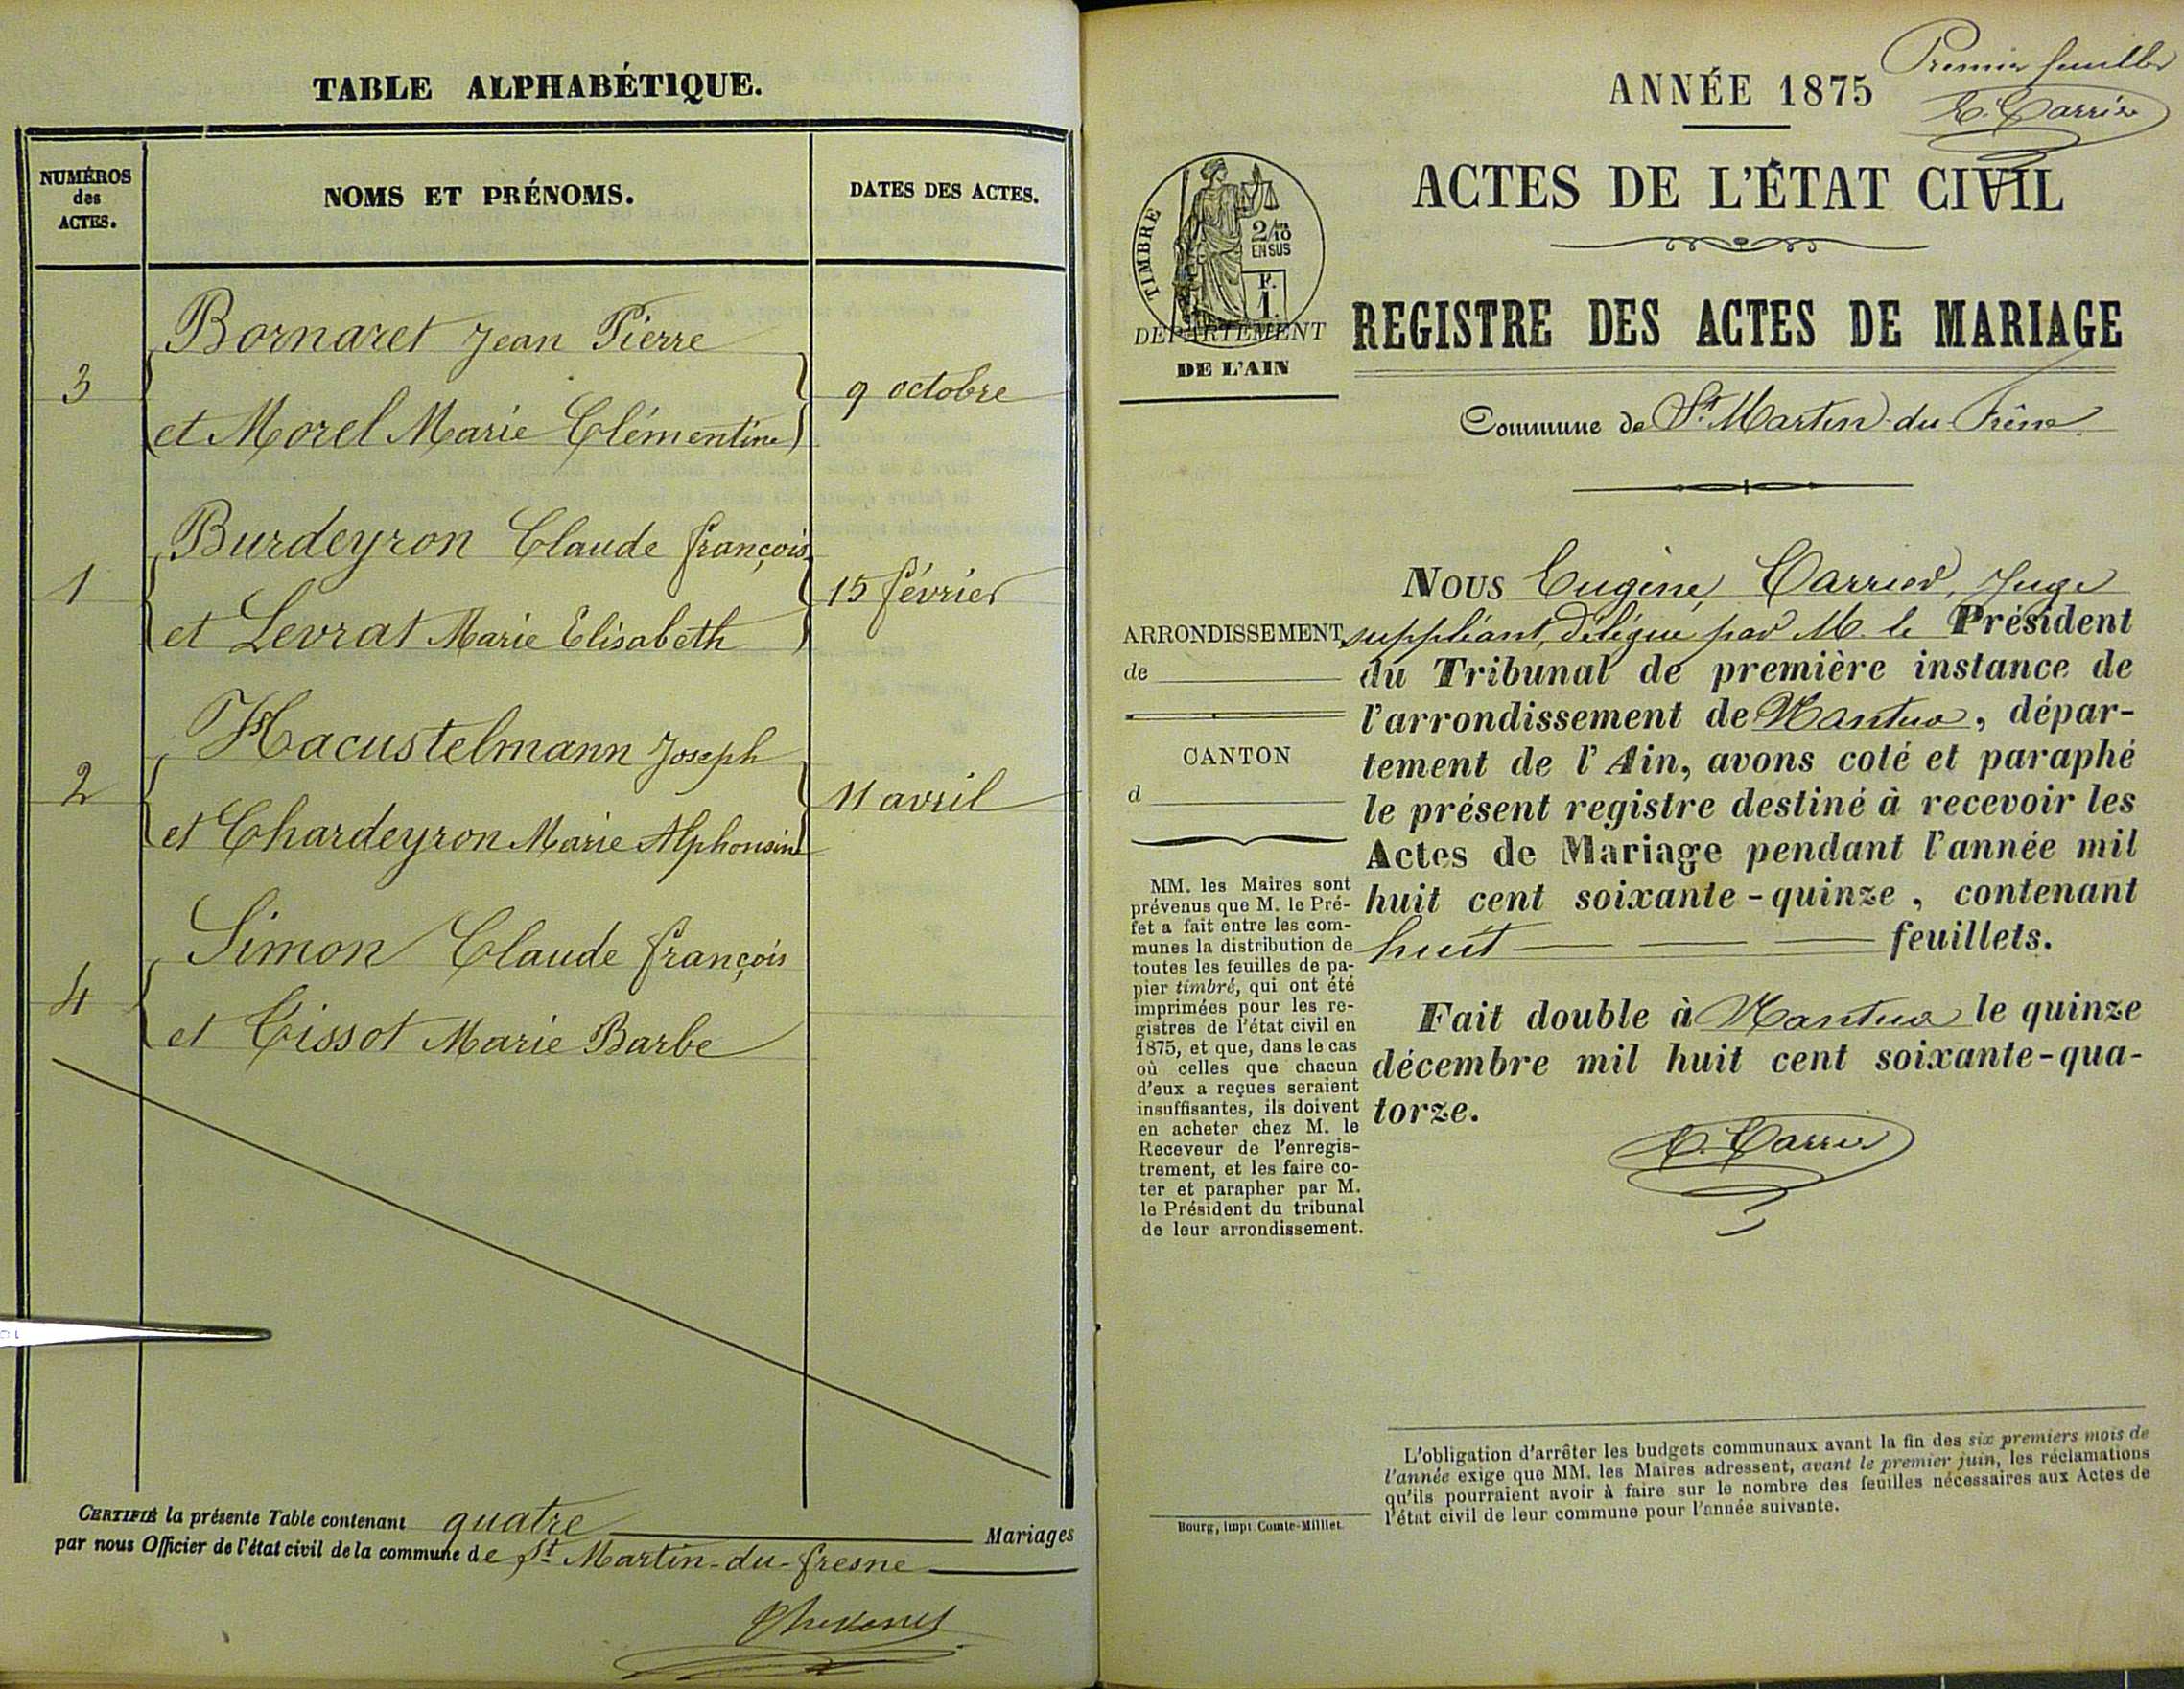 TABLE ALPHABÉTIQUE.
NUMÉROS
des
ACTES.
NOMS ET PRÉNOMS.
DATES DES ACTES.
Bornaret Jean Pierre
3
9 octobre
et Morel Marie Clémentine
Burdeyron Claude françois
1
15 février
et Levrat Marie Elisabeth
Hacustelmann Joseph
2
11 avril
et Chardeyron Marie Alphonsine
Simon Claude françois
4
et Tissot Marie Barbe
CERTIFIÉ la présente Table contenant quatre Mariages
par nous Officier de l'état civil de la commune de St Martin-du-fresne
Premier feuillet
E. Carrier
ANNÉE 1875
ACTES DE L'ÉTAT CIVIL
TIMBRE
2/10
EN SUS
F.
1.
DÉPARTEMENT
DE L'AIN
REGISTRE DES ACTES DE MARIAGE
Commune de St Martin-du-Frêne
NOUS Eugène Carrier, Juge
suppléant, délégué par M. le Président
du Tribunal de première instance de
l'arrondissement de Nantua, dépar-
tement de l'Ain, avons coté et paraphé
le présent registre destiné à recevoir les
Actes de Mariage pendant l'année mil
huit cent soixante-quinze, contenant
huit feuillets.
Fait double à Nantua le quinze
décembre mil huit cent soixante-qua-
torze.
E. Carrier
ARRONDISSEMENT
de
CANTON
d
MM. les Maires sont
prévenus que M. le Pré-
fet a fait entre les com-
munes la distribution de
toutes les feuilles de pa-
pier timbré, qui ont été
imprimées pour les re-
gistres de l'état civil en
1875, et que, dans le cas
où celles que chacun
d'eux a reçues seraient
insuffisantes, ils doivent
en acheter chez M. le
Receveur de l'enregis-
trement, et les faire co-
ter et parapher par M.
le Président du tribunal
de leur arrondissement.
L'obligation d'arrêter les budgets communaux avant la fin des six premiers mois de
l'année exige que MM. les Maires adressent, avant le premier juin, les réclamations
qu'ils pourraient avoir à faire sur le nombre des feuilles nécessaires aux Actes de
l'état civil de leur commune pour l'année suivante.
Bourg, impr. Comte-Milliet.